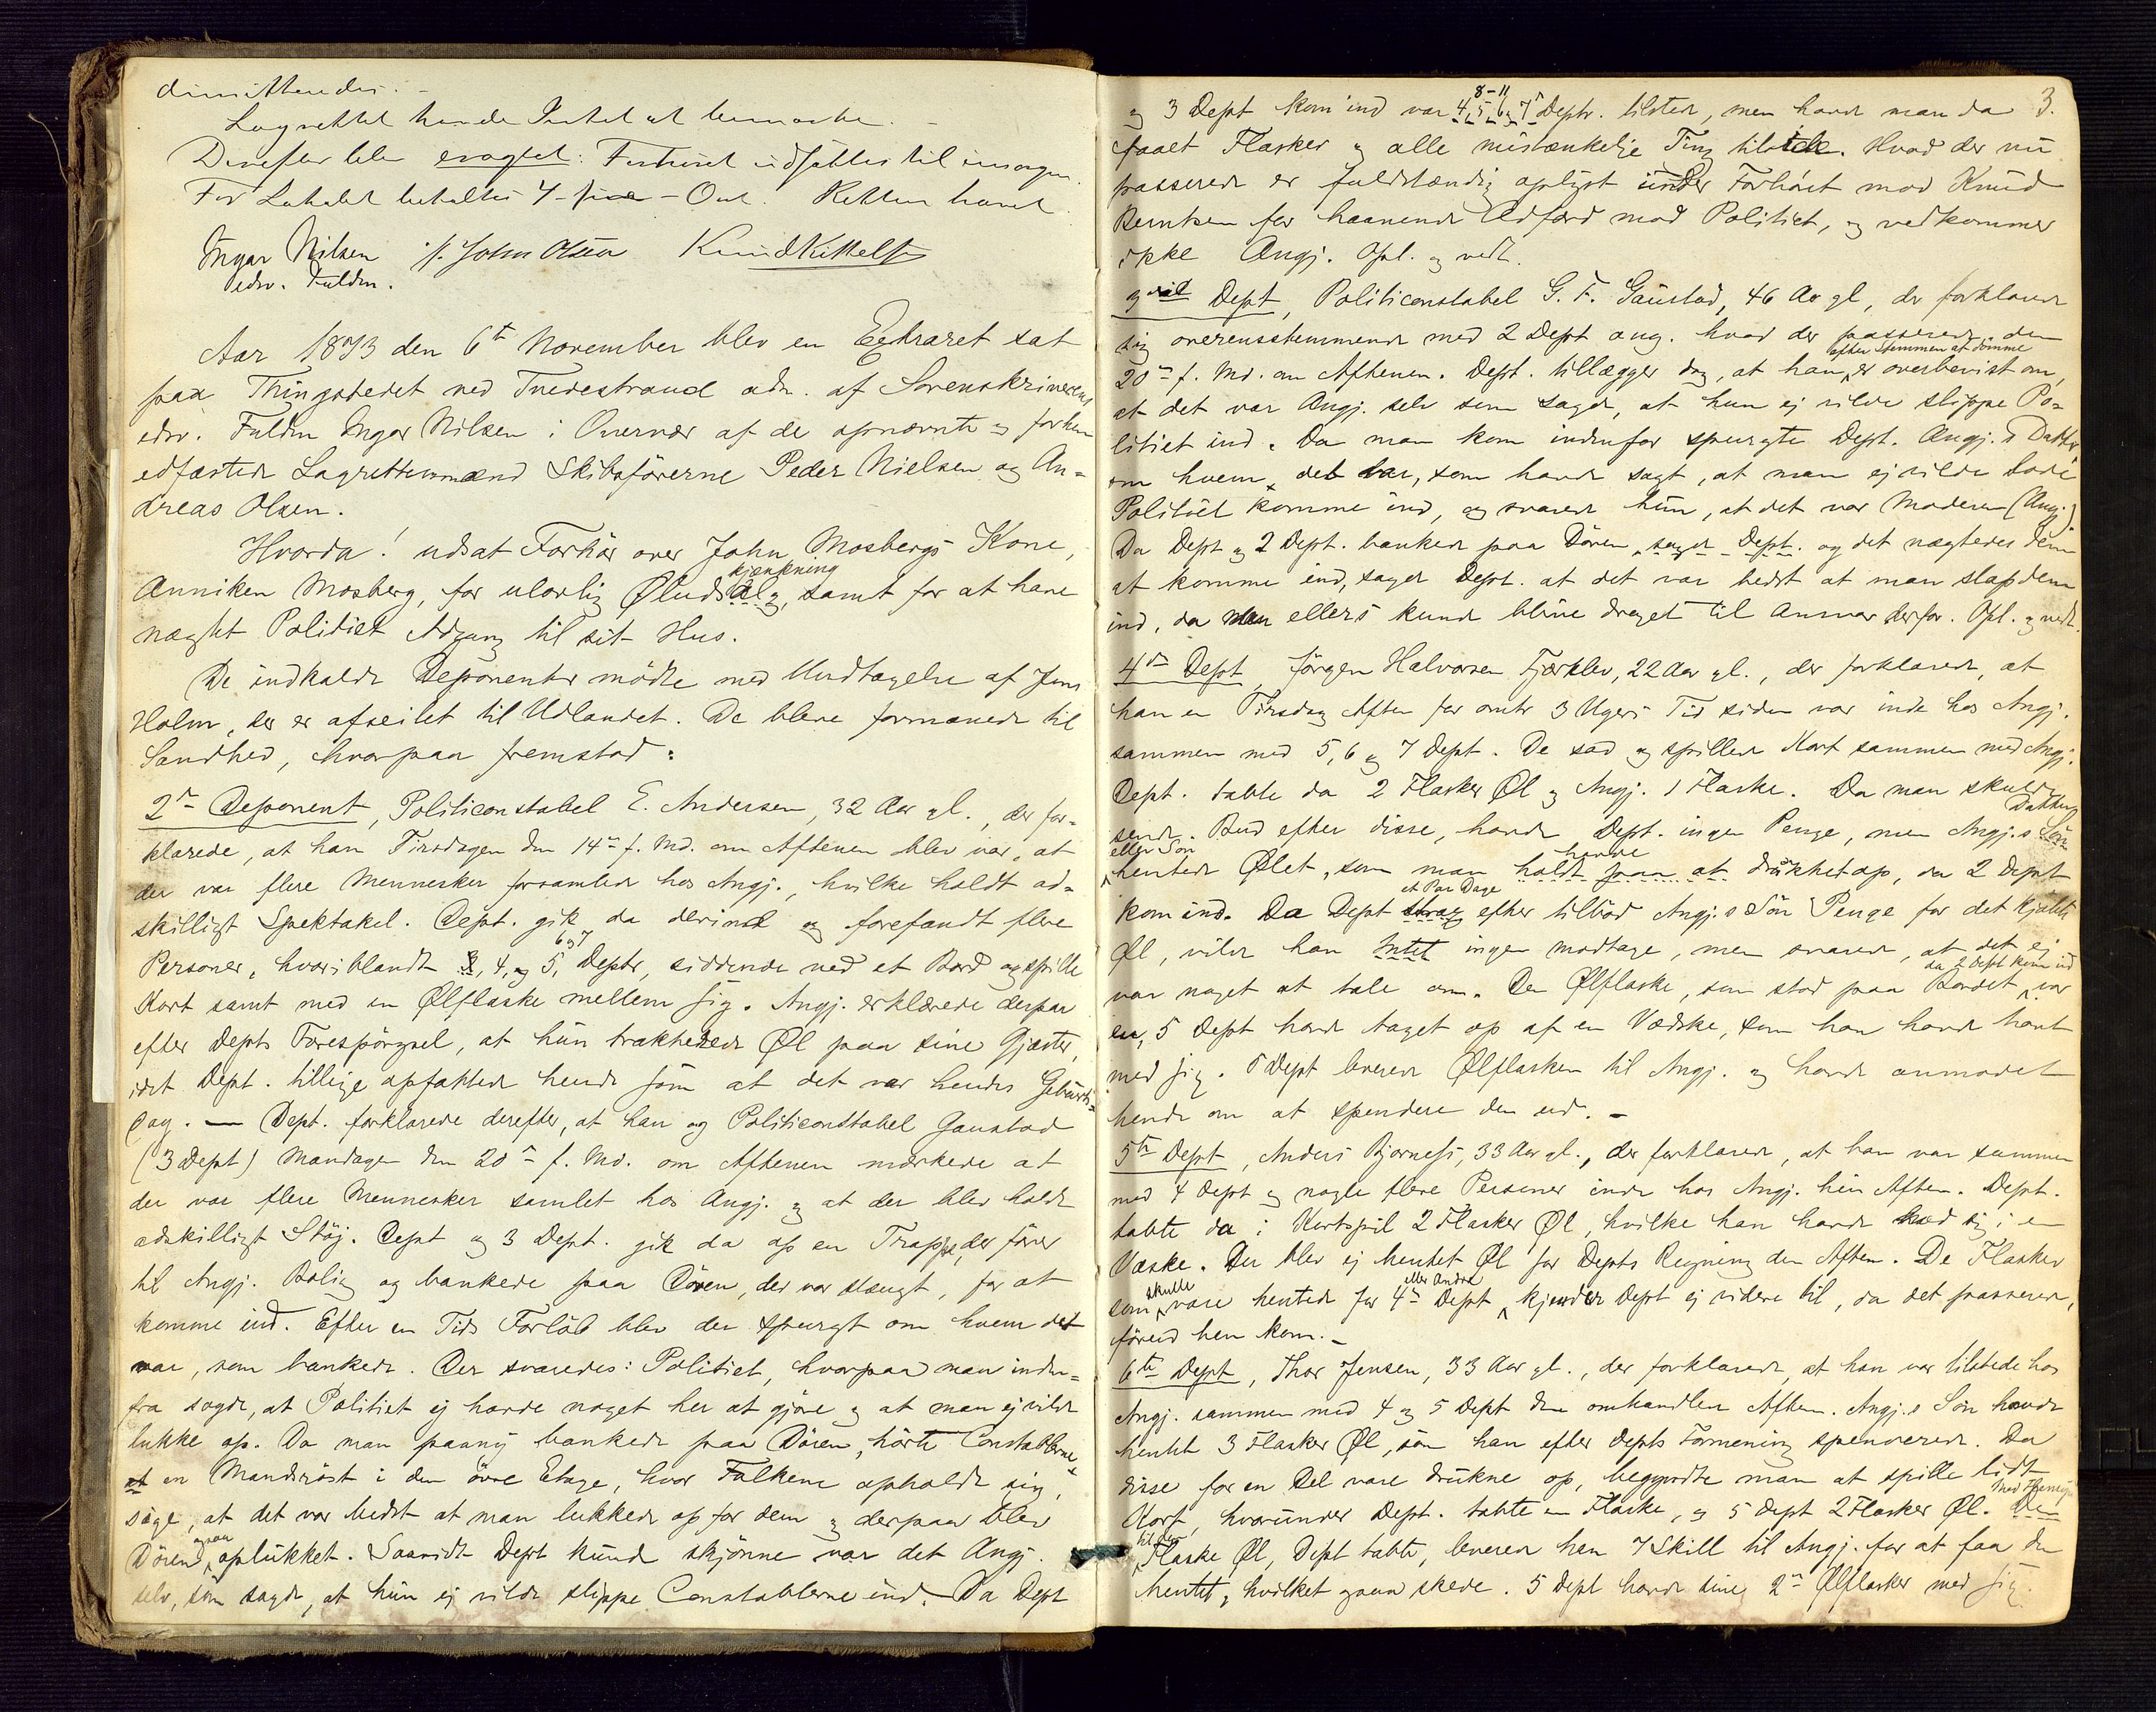 dimitteredes. -
Lagrettet havde Intet at bemærke. -
Derefter blev eragtet: Forhøret udsættes til imorgen.
For Lokalet betaltes 4 - fire - Ort. Retten hævet.
Ingar Nilsen /. John Olsen Knud Kittelsen
edsv. Fuldm.
Aar 1873 den 6te November blev en Extraret sat
paa Thingstedet ved Tvedestrand adm. af Sorenskriverens
edsv. Fuldm Ingar Nilsen i Overvær af de opnævnte og forhen
edfæstede Lagrettesmænd Skibsførerne Peder Nielsen og An-
dreas Olsen.
Hvorda! udsat Forhør over John Mosbergs Kone,
kjænkning
Anniken Mosberg, for ulovlig Øludsalg, samt for at have
nægtet Politiet Adgang til sit Hus.
De indkaldte Deponenter mødte med Undtagelse af Jens
Holm, der er afseilet til Udlandet. De bleve formanede til
Sandhed, hvorpaa fremstod:
2den Deponent, Politiconstabel E. Andersen, 32 Aar gl., der for-
klarede, at han Tirsdagen den 14de f. Md. om Aftenen blev var, at
der var flere Mennesker forsamlede hos Angj., hvilke holdt ad-
skilligt Spektakel. Dept. gik da derind og forefandt flere
6 og 7
Personer, hvoriblandt 3, 4, og 5, Deptr, siddende ved et Bord og spille
Kort samt med en Ølflaske mellem sig. Angj. erklærede derpaa
efter Depts Forespørgsel, at hun trakterede Øl paa sine Gjæster,
idet Dept. tillige opfattede hende som at det var hendes Geburts-
dag. — Dept. forklarede derefter, at han og Politiconstabel Gaustad
(3 Dept) Mandagen den 20de f. Md. om Aftenen mærkede at
der var flere Mennesker samlet hos Angj. og at der blev holdt
adskilligt Støj. Dept og 3 Dept. gik da op en Trappe, der fører
til Angj. Bolig og bankede paa Døren, der var stængt, for at
komme ind. Efter en Tids Forløb blev der spurgt om hvem det
var, som bankede. Der svaredes: Politiet, hvorpaa man inden-
fra sagde, at Politiet ej havde noget her at gjøre og at man ej vilde
lukke op. Da man paany bankede paa Døren, hørte Constablerne
at en Mandsrøst i den øvre Etage, hvor Folkene opholdt sig,
sige, at det var bedst at man lukkede op for dem og derpaa blev
ogsaa
Døren oplukket. Saavidt Dept kunde skjønne var det Angj.
selv, som sagde, at hun ej vilde slippe Constablerne ind. Da Dept
3.
8-11
og 3 Dept kom ind var 4, 5, 6 og 7de Deptr. tilstede, men havde man da
faaet Flasker og alle mistænkelige Ting tilside. Hvad der nu
passerede er fuldstændig oplyst under Forhøret mod Knud
Berntsen for haanende Adfærd mod Politiet, og vedkommer
ikke Angj. Opl. og vedt.
3die Dept, Politiconstabel G. F. Gaustad, 46 Aar gl, der forklarede
sig overensstemmende med 2 Dept ang. hvad der passerede den
efter Stemmen at dømme
20de f. Md. om Aftenen. Dept. tillægger dog, at han er overbevist om,
at det var Angj. selv som sagde, at hun ej vilde slippe Po-
litiet ind. Da man kom indenfor spurgte Dept. Angj.s Datter
om hvem det var, som havde sagt, at man ej vilde lade
Politiet komme ind, og svarede hun, at det var Moderen (Angj.)
Da Dept og 2 Dept. bankede paa Døren, sagde Dept. og det nægtedes dem
at komme ind, sagde Dept. at det var bedst at man slap dem
ind, da man ellers kunde blive draget til Ansvar derfor. Opl. og vedt.
4de Dept, Jørgen Halvorsen Fjærklev, 22 Aar gl., der forklarede, at
han en Tirsdag Aften for omtr 3 Ugers Tid siden var inde hos Angj.
sammen med 5, 6 og 7 Dept. De sad og spillede Kort sammen med Angj.
Dept. tabte da 2 Flasker Øl og Angj. 1 Flaske. Da man skulde
Datter
sende Bud efter disse, havde Dept. ingen Penge, men Angj.s Søn
eller Søn havde
hentede Ølet, som man holdt paa at drukket op, da 2 Dept
et Par Dage
kom ind. Da Dept strax efter tilbød Angj.s Søn Penge for det kjøbte
Øl, vilde han Intet ingen modtage, men svarede, at det ej
da 2 Dept kom ind
var noget at tale om. Den Ølflaske, som stod paa Bordet var
en, 5 Dept havde taget op af en Vædske, som han havde havt
med sig. 5 Dept leverede Ølflasken til Angj. og havde anmodet
hende om at spendere den ud. -
5te Dept, Anders Bjorness, 33 Aar gl., der forklarede, at han var sammen
med 4 Dept og nogle flere Personer inde hos Angj. hin Aften. Dept.
tabte da i Kortspil 2 Flasker Øl, hvilke han havde hos sig i en
Væske. Der blev ej hentet Øl for Depts Regning den Aften. De Flasker
skulde eller Andre
som være hentede for 4de Dept kjender Dept ej videre til, da det passerede,
førend han kom. -
6te Dept, Thor Jensen, 33 Aar gl., der forklarede, at han var tilstede hos
Angj. sammen med 4 og 5 Dept den omhandlede Aften. Angj.s Søn havde
hentet 3 Flasker Øl, som han efter Depts Formening spenderede. Da
disse for en Del vare drukne op, begyndte man at spille lidt
Med Hensyn
Kort, hvorunder Dept. tabte en Flaske, og 5 Dept 2 Flasker Øl. Den
til den
Flaske Øl, Dept tabte, leverede han 7 Skill til Angj. for at faa den
hentet, hvilket ogsaa skede. 5 Dept havde sine 2de Ølflasker med sig.